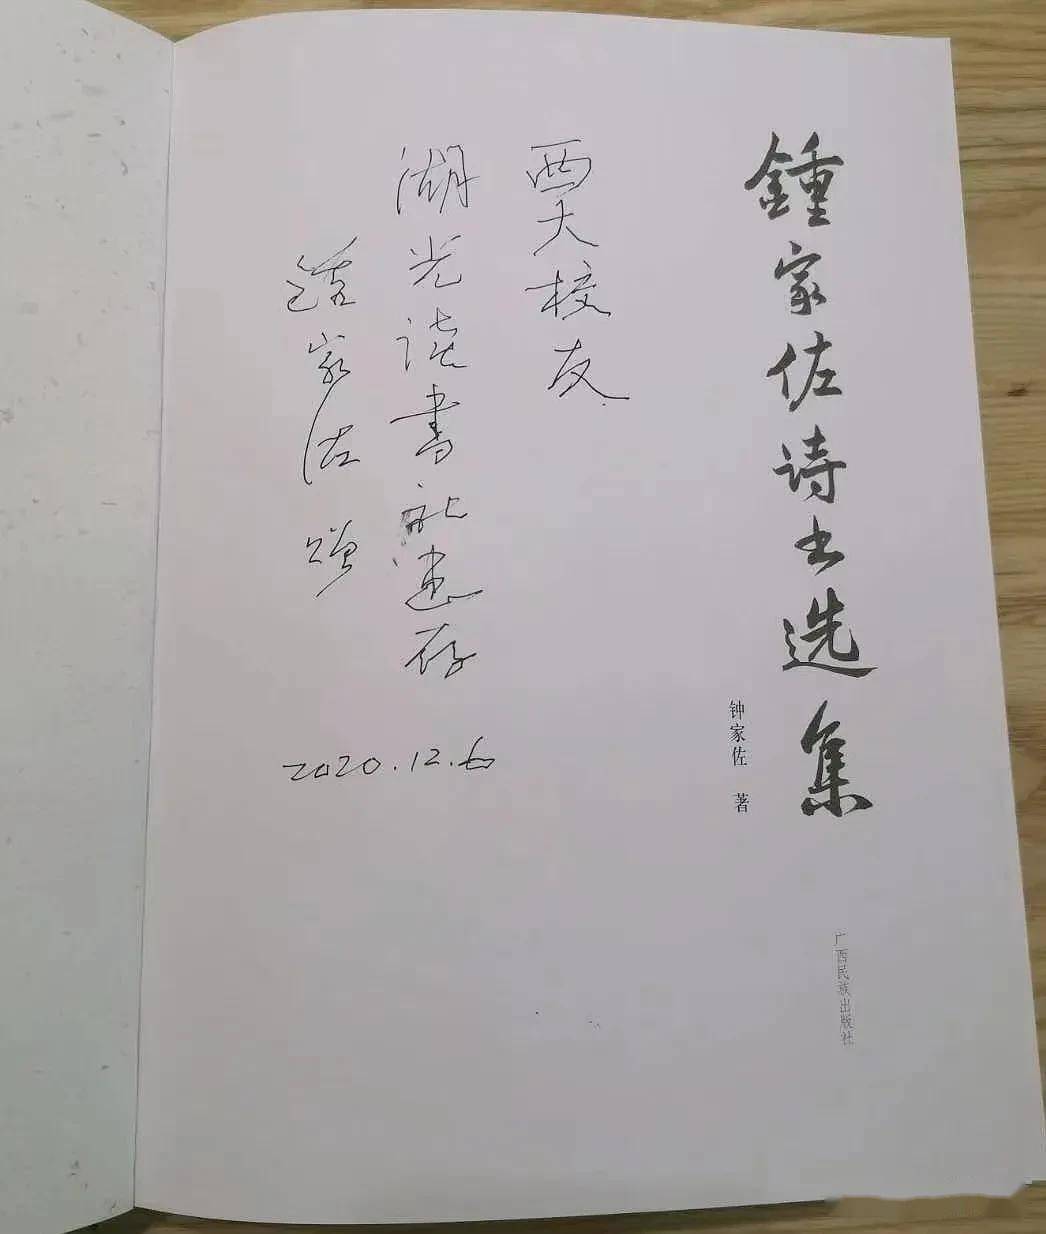 鍾家佐诗书选集
钟家佐 著
广西民族出版社
西大校友
湖光读書社惠存
鍾家佐赠
2020.12.6